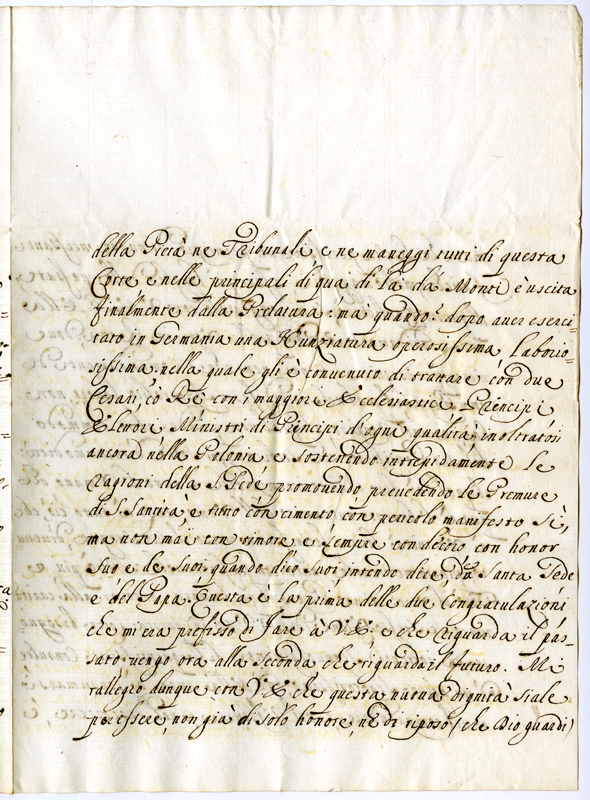 della Pietà ne Tribunali e ne maneggi tutti di questa
Corte e nelle principali di qua di là dà Monti è uscita
finalmente dalla Prelatura: mà quando? dopo auer eserci=
tato in Germania una Nunziatura operosissima, laborio=
sissima nella quale gli è conuenuto di trattare con due
Cesari, cò Rè con i maggiori Ecclesiastici Principi
Elettori Ministri di Principi d'ogni qualità inoltratosi
ancora nella Polonia e sostenendo intrepidamente le
ragioni della S. Sede promouendo preuedendo le Premure
di S. Santità, e tutto con cimento con pericolo manifesto sì,
ma non mai con timore e sempre con decoro con honor
suo e de suoi, quando dico suoi intendo dire, dà Santa Sede
e del Papa. Questa è la prima delle due Congratulazioni
che mi era prefisso di fare à V.E. e che riguarda il pas=
sato uengo ora alla seconda che riguarda il futuro. Mi
rallegro dunque con V.E. che questa nuoua dignità siale
per essere, non già di solo honore, nè di riposo (che Dio guardi)